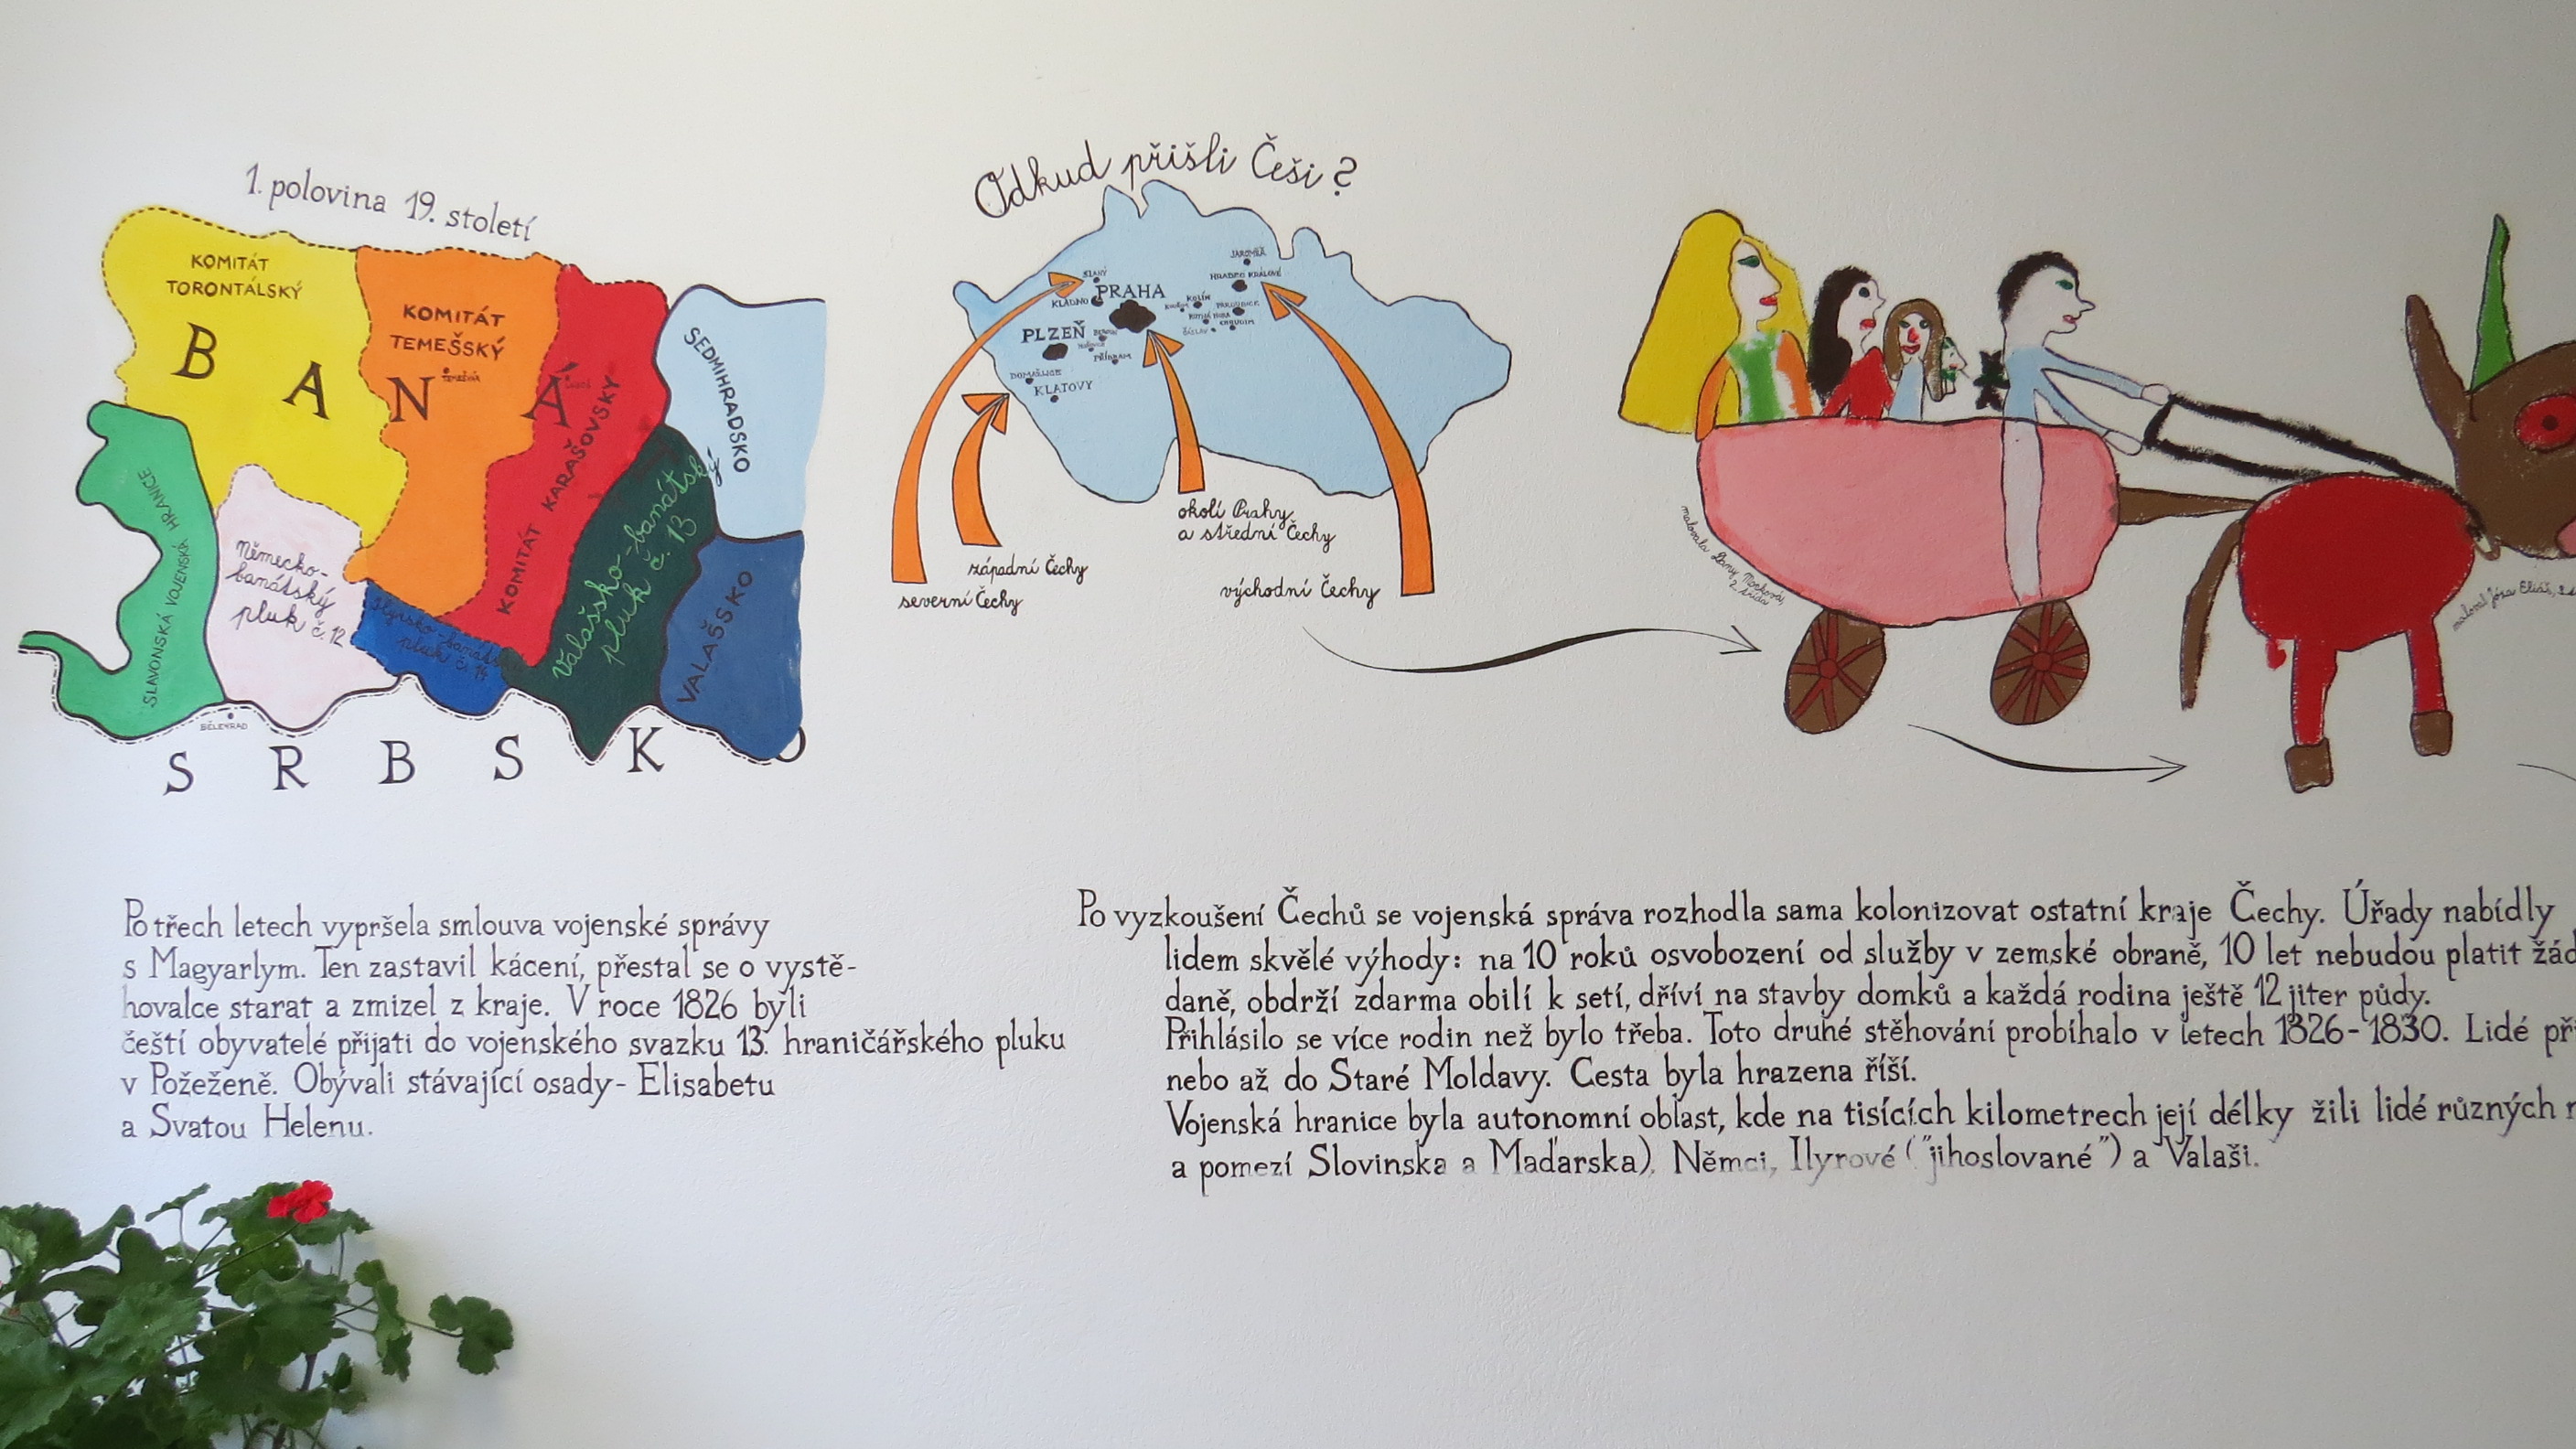 1. polovina 19. století
KOMITÁT
TORONTÁLSKÝ
KOMITÁT
TEMEŠSKÝ
B A N Á
KOMITÁT KARAŠOVSKÝ
SEDMIHRADSKO
SLAVONSKÁ VOJENSKÁ HRANICE
Německo-
banátský
pluk č. 12
pluk č. 14
Valašsko-banátský
pluk č. 13
VALAŠSKO
BĚLEHRAD
S R B S K O
Odkud přišli Češi?
JAROMĚŘ
SLANÝ
HRADEC KRÁLOVÉ
PRAHA
KLADNO
KOLÍN
PARDUBICE
KUTNÁ HORA
ČÁSLAV
CHRUDIM
PLZEŇ
BEROUN
PŘÍBRAM
DOMAŽLICE
KLATOVY
okolí Prahy
a střední Čechy
západní Čechy
severní Čechy
východní Čechy
malovala
2. třída
maloval Józa Eliáš,
Po třech letech vypršela smlouva vojenské správy
s Magyarlym. Ten zastavil kácení, přestal se o vystě-
hovalce starat a zmizel z kraje. V roce 1826 byli
čeští obyvatelé přijati do vojenského svazku 13. hraničářského pluku
v Požeženě. Obývali stávající osady- Elisabetu
a Svatou Helenu.
Po vyzkoušení Čechů se vojenská správa rozhodla sama kolonizovat ostatní kraje Čechy. Úřady nabídly
lidem skvělé výhody: na 10 roků osvobození od služby v zemské obraně, 10 let nebudou platit žád
daně, obdrží zdarma obilí k setí, dříví na stavby domků a každá rodina ještě 12 jiter půdy.
Přihlásilo se více rodin než bylo třeba. Toto druhé stěhování probíhalo v letech 1826-1830. Lidé při
nebo až do Staré Moldavy. Cesta byla hrazena říší.
Vojenská hranice byla autonomní oblast, kde na tisících kilometrech její délky žili lidé různých
a pomezí Slovinska a Maďarska), Němci, Ilyrové ("jihoslované") a Valaši.